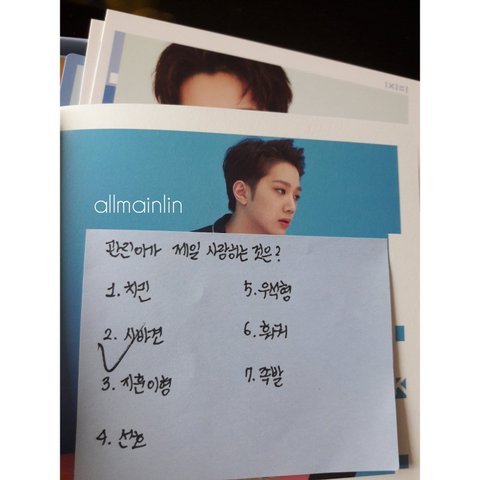 allmainlin
관린아가 제일 사랑하는 것은?
1. 치킨
2. 시바견
3. 지훈이형
4. 선호
5. 우석형
6. 훠궈
7. 족발